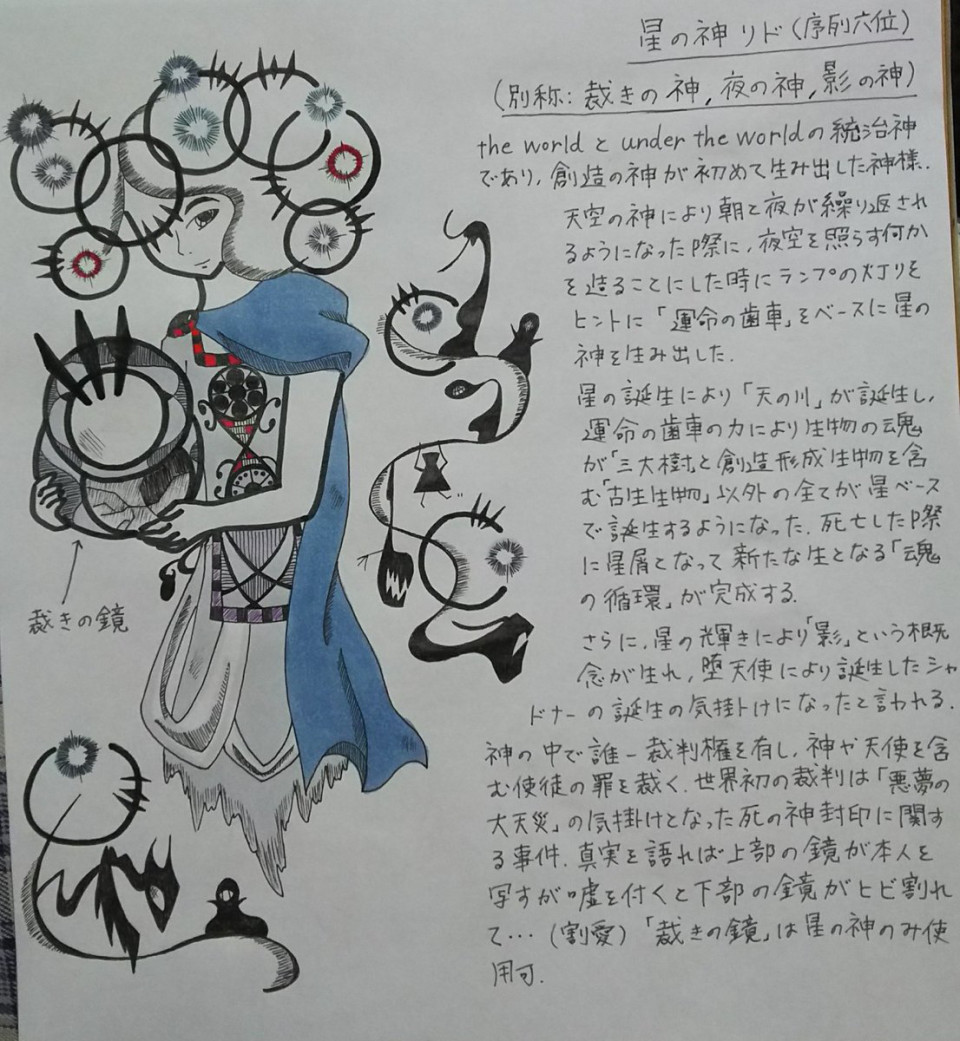 星の神 リド(序列六位)
(別称: 裁きの神, 夜の神, 影の神)
the world と under the world の統治神
であり, 創造の神が初めて生み出した神様.
天空の神により朝と夜が繰り返され
るようになったP祭に, 夜空を照らす何か
を造ることにした時にランプの灯りを
ヒントに「運命の歯車」をベースに星の
神を生み出した.
星の誕生により「天の川」が誕生し,
運命の歯車の力により生物の魂
が「三大樹と創造形成生物を含
む「古生生物」以外の全てが星ベース
で誕生するようになった. 死亡したP祭
に星屑となって新たな生となる「魂
の循環」が完成する.
さらに, 星の輝きにより「影」という概
念が生れ, 堕天使により誕生したシャ
ドナーの誕生の気掛けになったと言われる.
神の中で誰一裁判権を有し, 神や天使を含
む使徒の罪を裁く. 世界初の裁判は「悪夢の
大天災」の気掛けとなった死の神封印に関す
る事件. 真実を語れば上部の鏡が本人を
写すが嘘を付くと下部の鏡がヒビ割れ
て… (割愛) 「裁きの鏡」は星の神のみ使
用可.
裁きの鏡